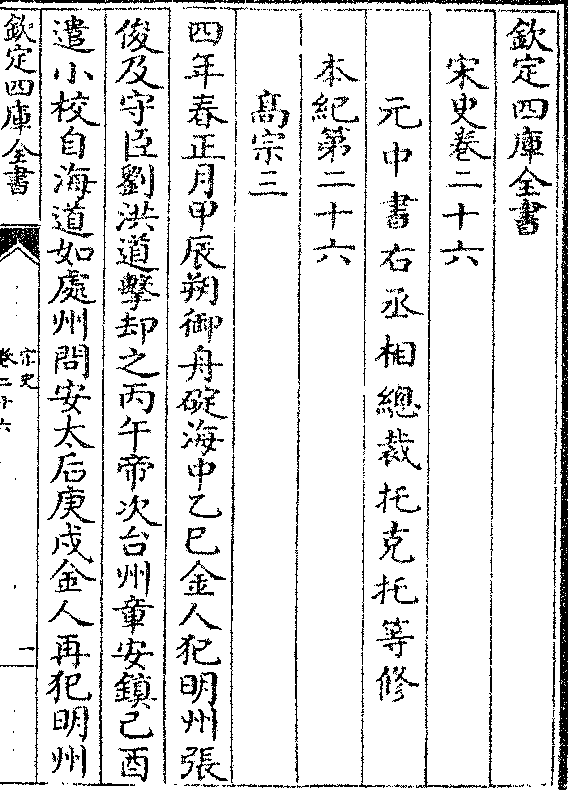 欽定四庫全書
宋史卷二十六
元中書右丞相總裁托克托等修
本紀第二十六
高宗三
四年春正月甲辰朔御舟碇海中乙巳金人犯明州張
俊及守臣劉洪道擊却之丙午帝次台州章安鎮己酉
遣小校自海道如處州問安太后庚戌金人再犯明州
欽定四庫全書
宋史
卷二十六
一